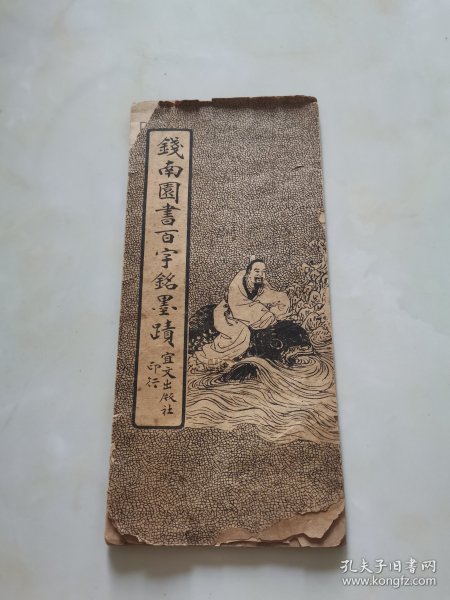 錢南園書百字銘墨蹟
宜文出版社
印行
孔夫子旧书网
www.kongfz.com